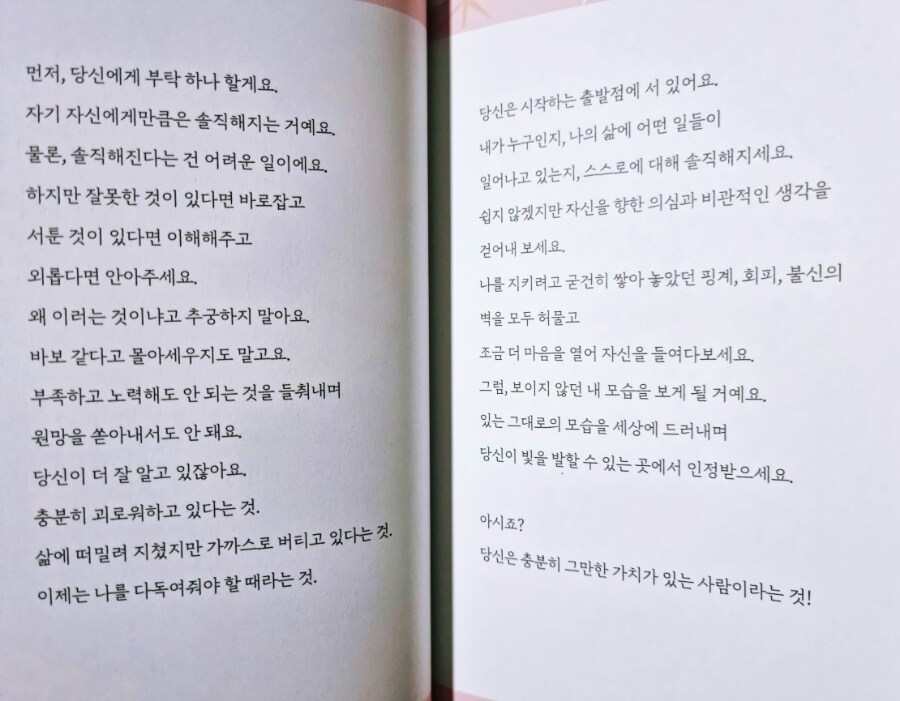 먼저, 당신에게 부탁 하나 할게요.
자기 자신에게만큼은 솔직해지는 거예요.
물론, 솔직해진다는 건 어려운 일이에요.
하지만 잘못한 것이 있다면 바로잡고
서툰 것이 있다면 이해해주고
외롭다면 안아주세요.
왜 이러는 것이냐고 추궁하지 말아요.
바보 같다고 몰아세우지도 말고요.
부족하고 노력해도 안 되는 것을 들춰내며
원망을 쏟아내서도 안 돼요.
당신이 더 잘 알고 있잖아요.
충분히 괴로워하고 있다는 것.
삶에 떠밀려 지쳤지만 가까스로 버티고 있다는 것.
이제는 나를 다독여줘야 할 때라는 것.
당신은 시작하는 출발점에 서 있어요.
내가 누구인지, 나의 삶에 어떤 일들이
일어나고 있는지, 스스로에 대해 솔직해지세요.
쉽지 않겠지만 자신을 향한 의심과 비관적인 생각을
걷어내 보세요.
나를 지키려고 굳건히 쌓아 놓았던 핑계, 회피, 불신의
벽을 모두 허물고
조금 더 마음을 열어 자신을 들여다보세요.
그럼, 보이지 않던 내 모습을 보게 될 거예요.
있는 그대로의 모습을 세상에 드러내며
당신이 빛을 발할 수 있는 곳에서 인정받으세요.
아시죠?
당신은 충분히 그만한 가치가 있는 사람이라는 것!